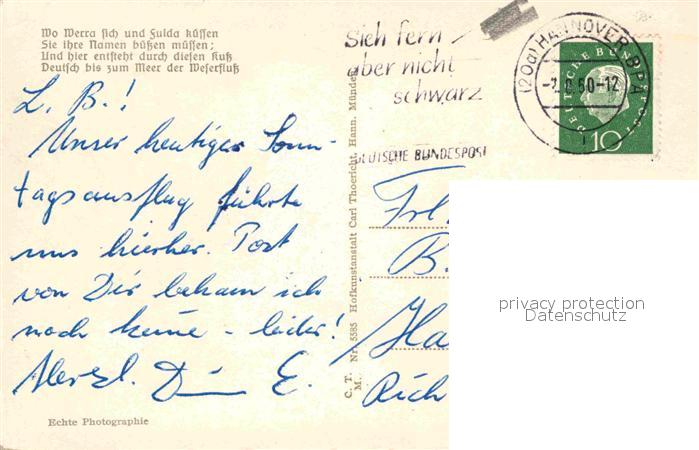 Wo Werra sich und Fulda küssen
Sie ihre Namen büßen müssen;
Und hier entsteht durch diesen Kuß
Deutsch bis zum Meer der Weserfluß
Sieh fern
aber nicht
schwarz
DEUTSCHE BUNDESPOST
(20a) HANNOVER BPA
60-12
DEUTSCHE BUNDESPOST
10
L. B.!
Unser heutiger Sonn-
tagsausflug führte
uns hierher. Post
von Dir bekam ich
noch keine - leider!
Herzl. E.
Echte Photographie
C. T. Nr. 5585 Hofkunstanstalt Carl Thoericht, Hann. Münden
M.
Frl.
B.
Ha
Rich
privacy protection
Datenschutz